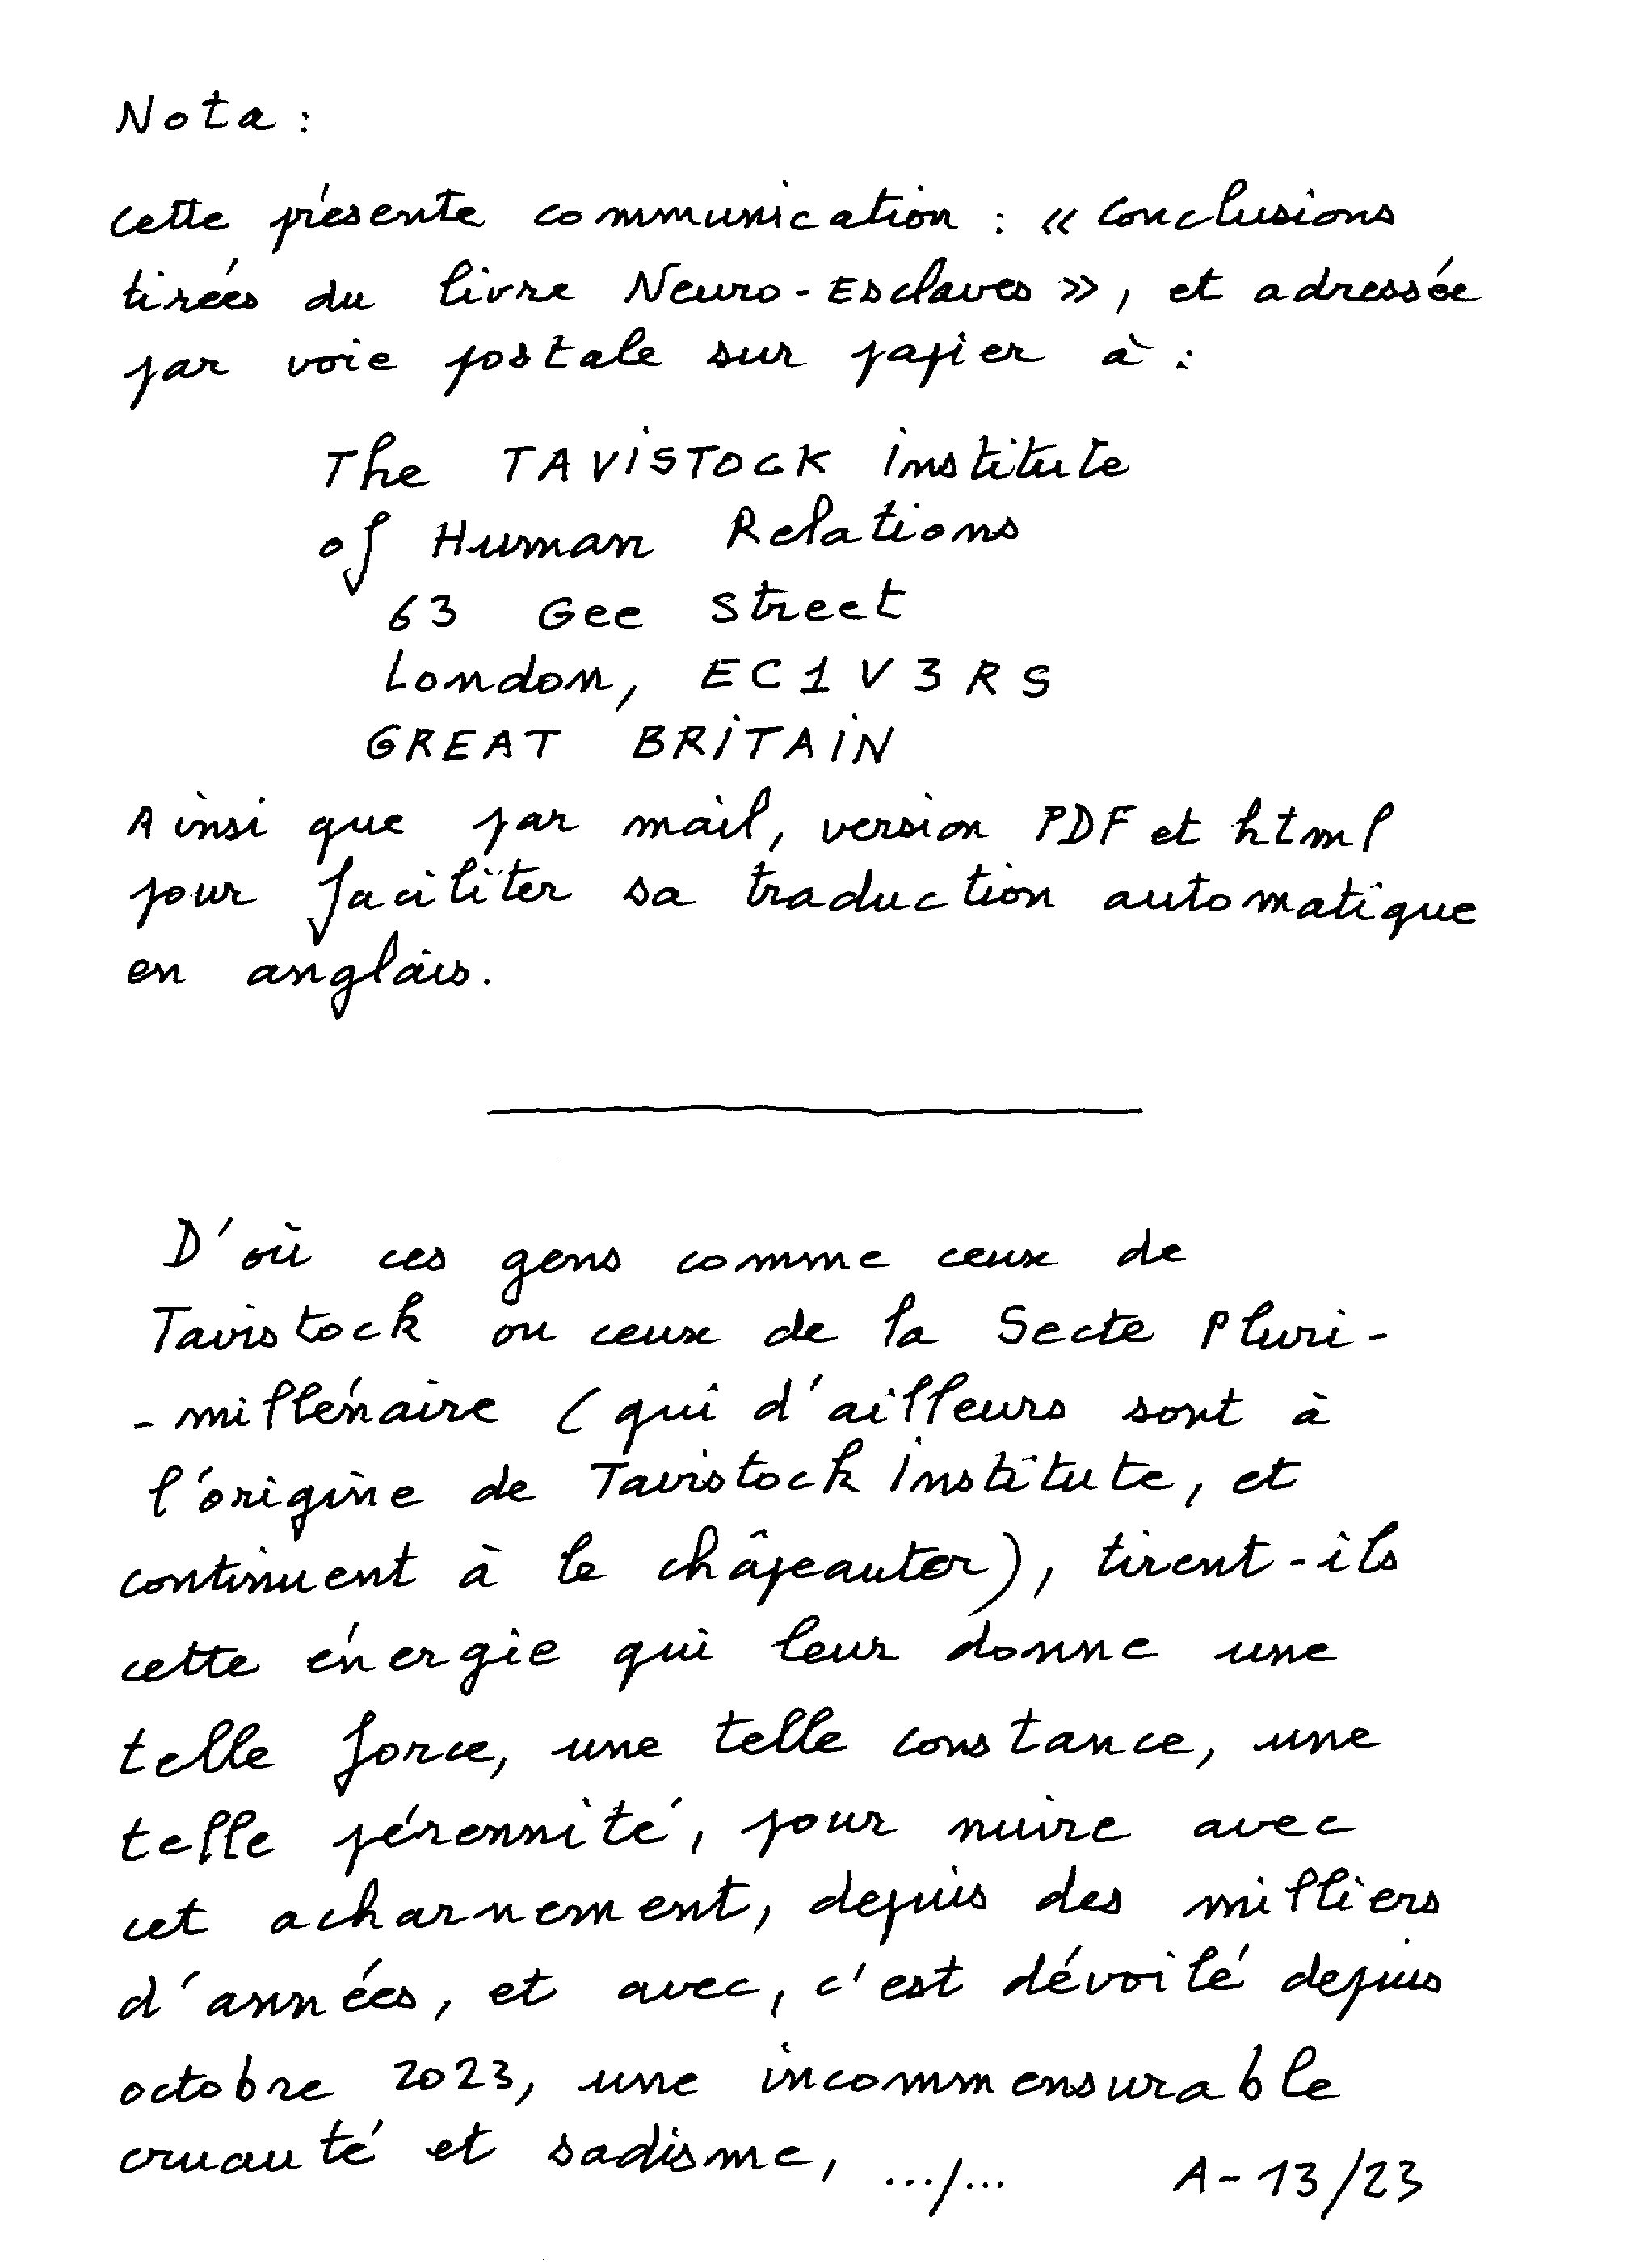 Nota :
cette présente communication : « Conclusions
tirées du livre Neuro-Esclaves », et adressée
par voie postale sur papier à :
The TAVISTOCK institute
of Human Relations
63 Gee Street
London, EC1V3RS
GREAT BRITAIN
Ainsi que par mail, version PDF et html
pour faciliter sa traduction automatique
en anglais.
D'où ces gens comme ceux de
Tavistock ou ceux de la Secte Pluri-
-millénaire (qui d'ailleurs sont à
l'origine de Tavistock institute, et
continuent à le châpeauter), tirent-ils
cette énergie qui leur donne une
telle force, une telle constance, une
telle pérennité, pour nuire avec
cet acharnement, depuis des milliers
d'années, et avec, c'est dévoilé depuis
octobre 2023, une incommensurable
cruauté et sadisme, .../... A-13/23